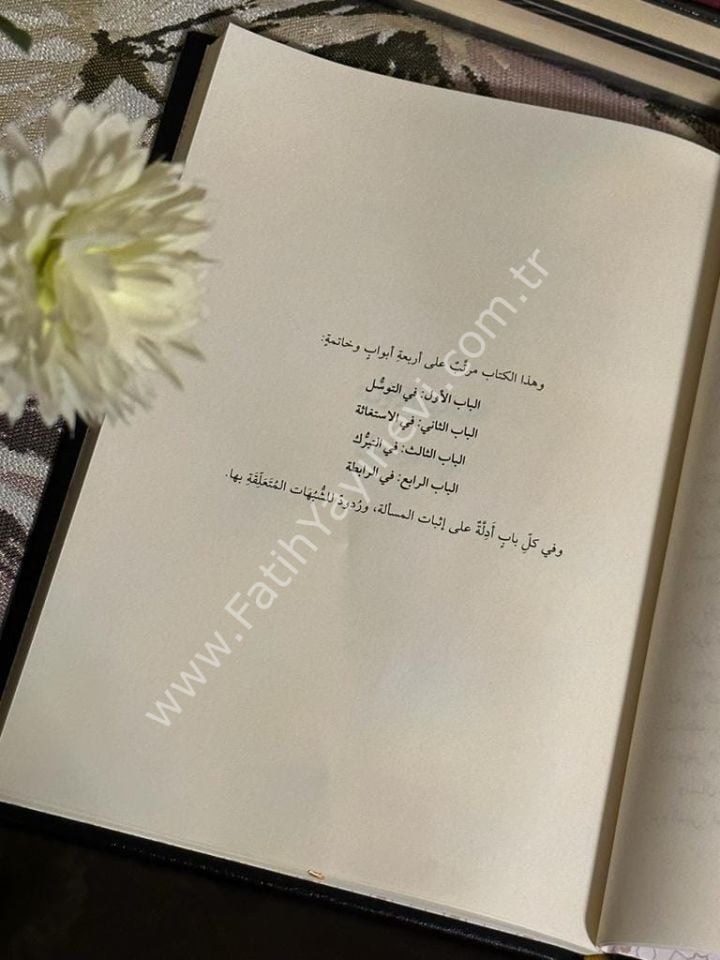 وهذا الكتاب مرتَّبٌ على أربعةِ أبوابٍ وخاتمةٍ:
الباب الأول: في التوسُّل
الباب الثاني: في الاستغاثة
الباب الثالث: في التبرُّك
الباب الرابع: في الرابطة
وفي كلِّ بابٍ أَدِلَّةٌ على إثبات المسألة، ورُدودٌ للشُّبُهَات المُتَعَلِّقَةِ بها.
www.FatihYayinevi.com.tr